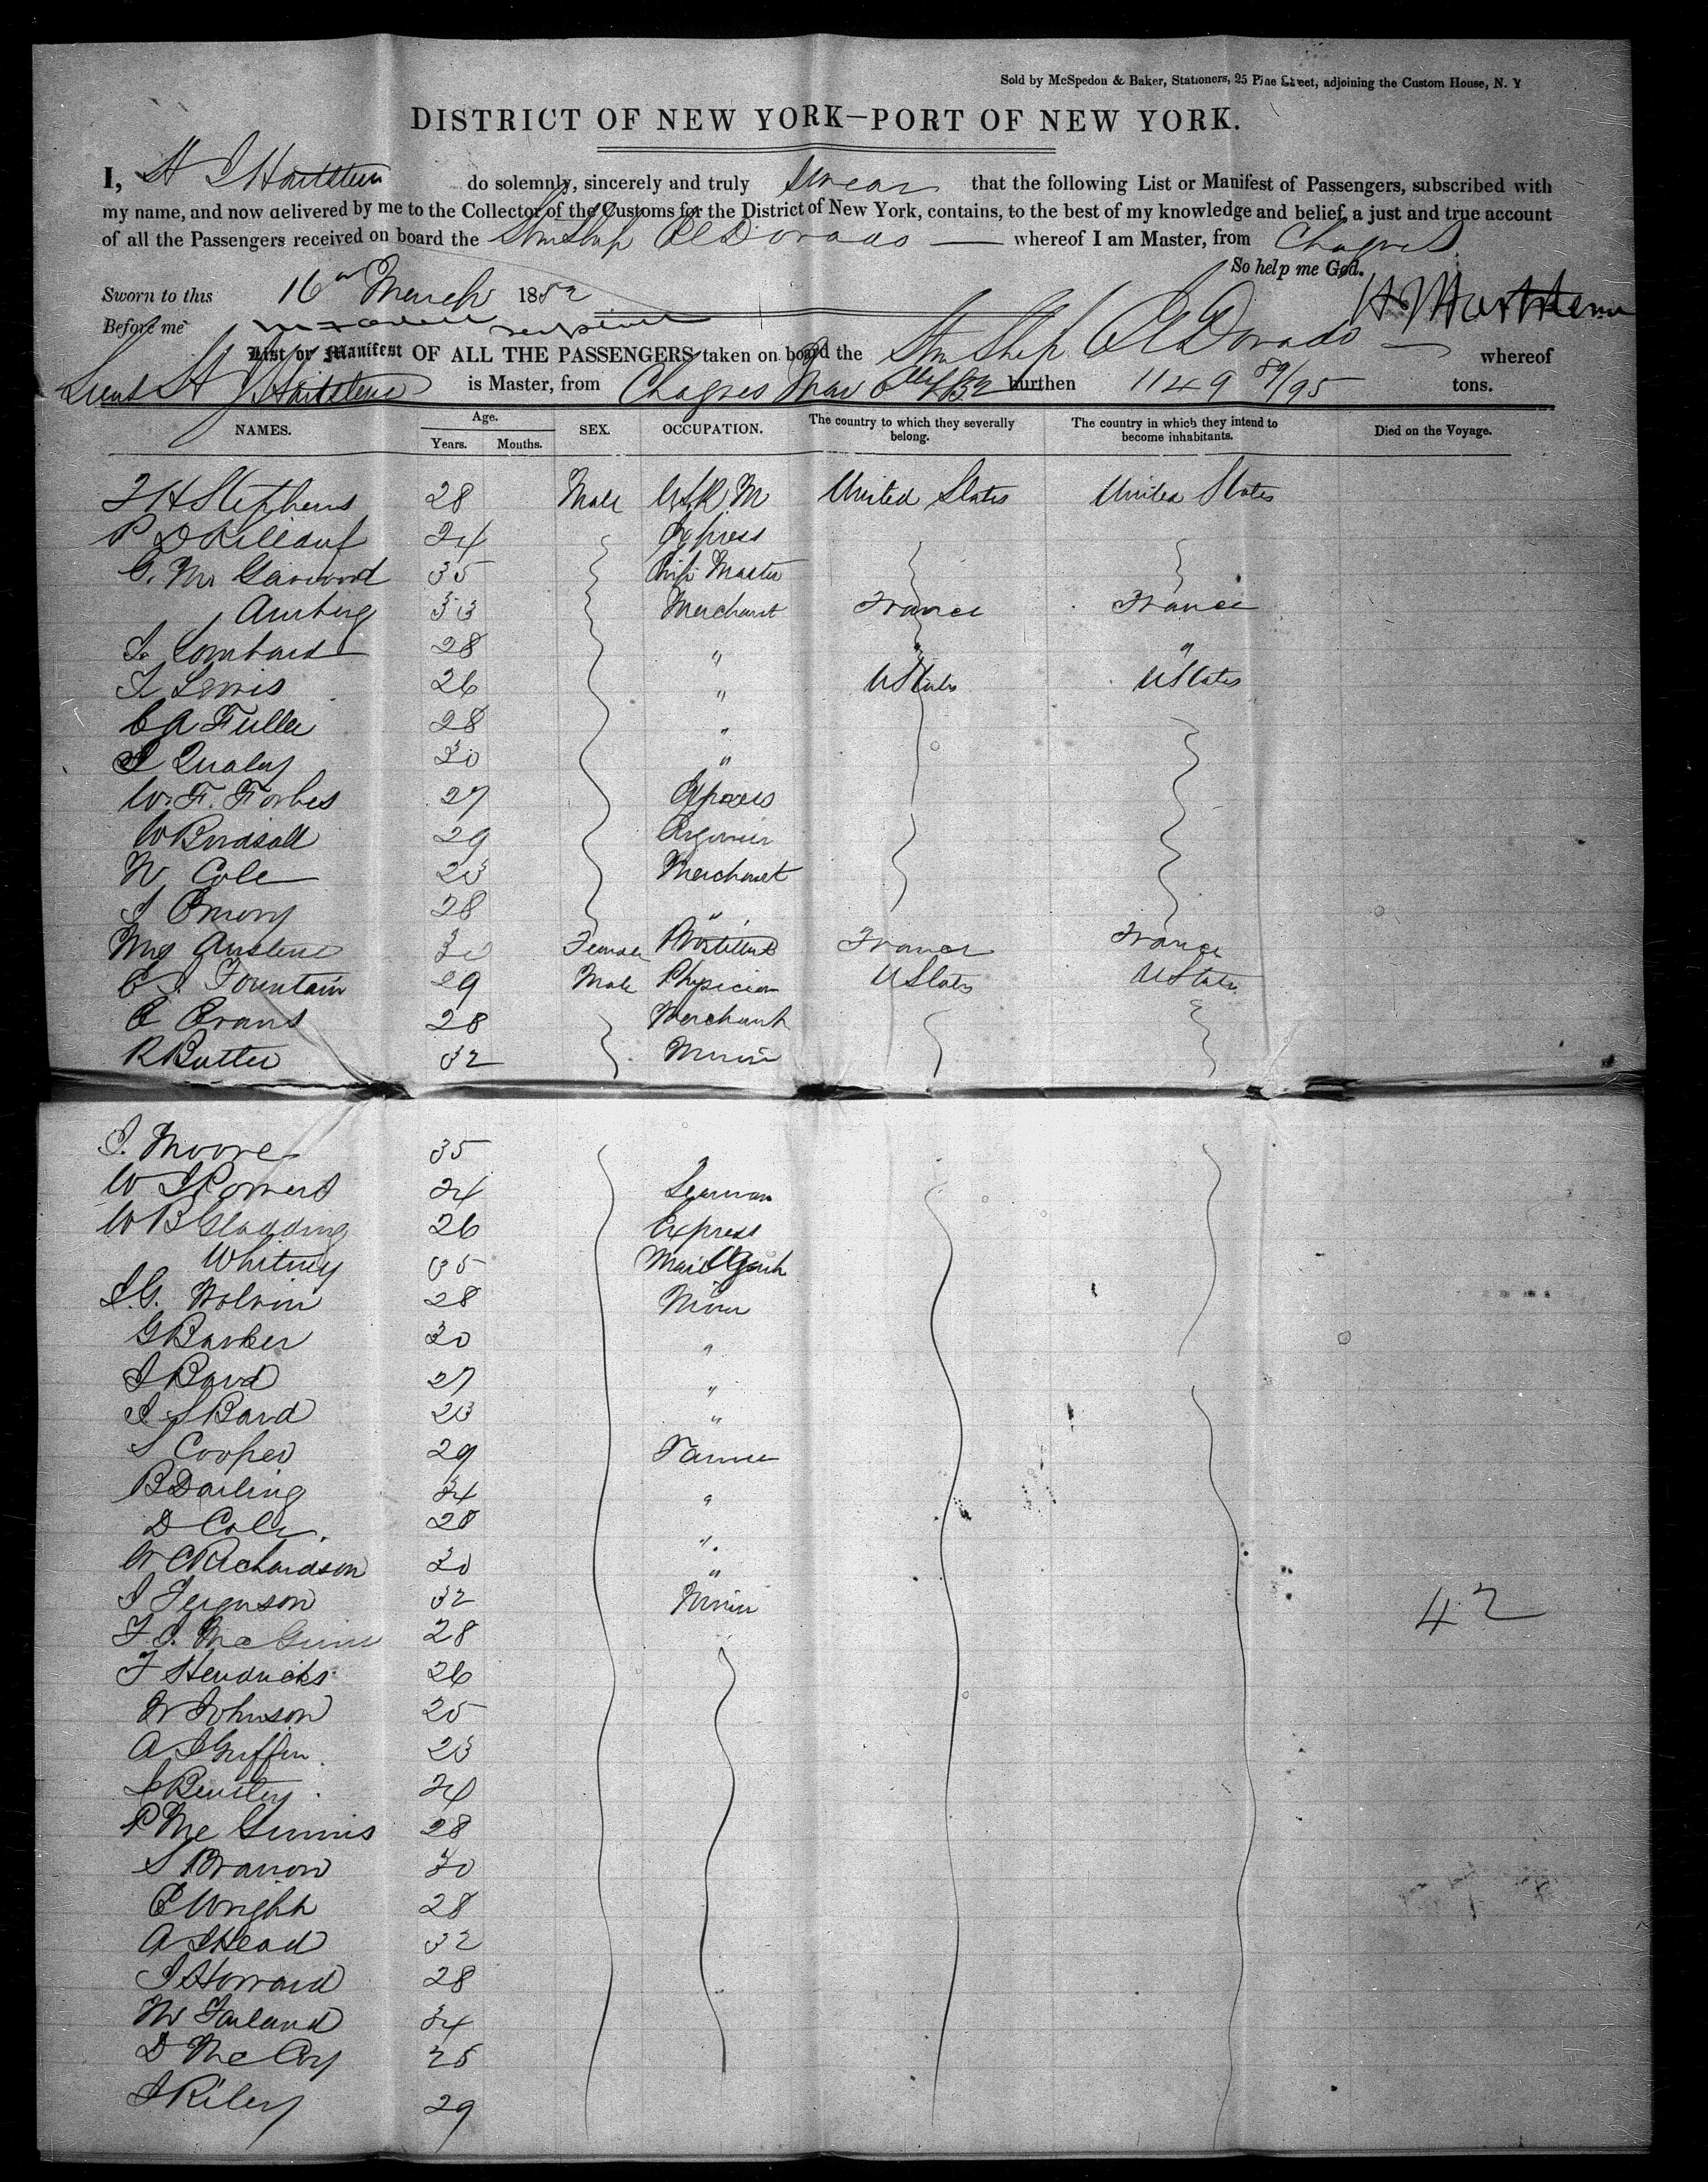 Sold by McSpedon & Baker, Stationers, 25 Pine Street, adjoining the Custom House, N. Y
DISTRICT OF NEW YORK—PORT OF NEW YORK.
I, H J Hartstene do solemnly, sincerely and truly swear that the following List or Manifest of Passengers, subscribed with
my name, and now delivered by me to the Collector of the Customs for the District of New York, contains, to the best of my knowledge and belief, a just and true account
of all the Passengers received on board the StmShip El Dorado — whereof I am Master, from Chagres
So help me God.
Sworn to this 16 March 1852
H J Hartstene
Before me
List or Manifest OF ALL THE PASSENGERS taken on board the Stm Ship El Dorado — whereof
Lieut H J Hartstene is Master, from Chagres Mar 1852 burthen 1149 89/95 tons.
NAMES. Age. Years. Months. SEX. OCCUPATION. The country to which they severally belong. The country in which they intend to become inhabitants. Died on the Voyage.
J H Stephens 28 Male U S R M United States United States
P D 24 Express
G. M. Garwood 35 Ship Master
33 Merchant France France
S. Lombard 28 " " "
S Lewis 26 " U States U States
C A Fuller 28 "
30 "
W. F. Forbes 27 Express
W Birdsall 29
W Cole 23 Merchant
J Emory 28 "
30 Female France France
E J Fountain 29 Male Physician U States U States
E Evans 28 Merchant
R Butler 32 Miner
J. Moore 35 "
W J Powers 24 Seaman
W B Gladding 26 Express
Whitney 35 Mail Agent
J. G. 28 Miner
G Barker 30 "
J Bard 27 "
J. S Bard 23 "
S Cooper 29 Farmer
B Darling 34 "
D Cole. 28 "
W C Richardson 30 "
J Ferguson 32 Miner
42
28
F Hendricks 26
W Johnson 25
A J Griffin. 23
24
P Mc Ginnis 28
S 30
E Wright 28
A J Head 32
J Howard 28
34
D Mc Coy 25
J Riley 29